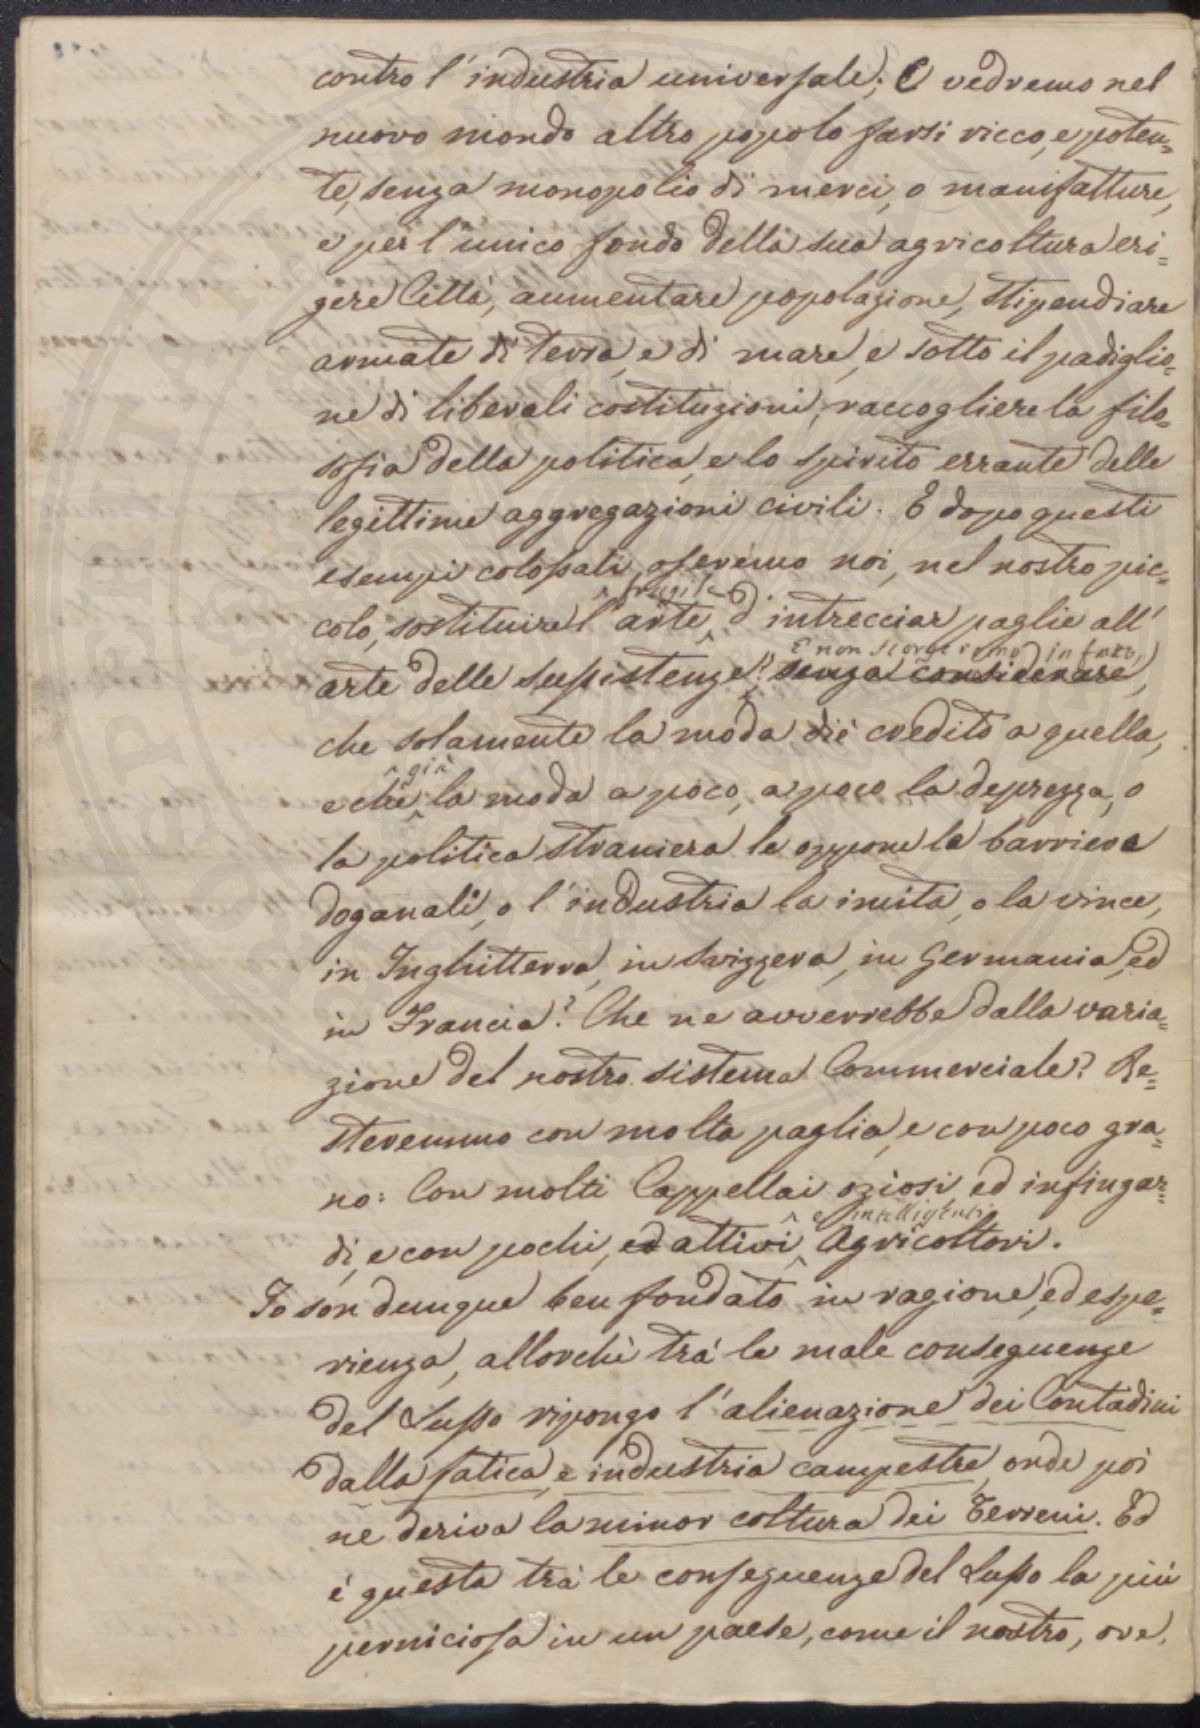 contro l'industria universale; E vedremo nel
nuovo mondo altro popolo farsi ricco, e poten=
te, senza monopolio di merci, o manifatture,
e per l'unico fondo della sua agricoltura eri=
gere Città, aumentare popolazione, stipendiare
armate di terra, e di mare, e sotto il padiglio=
ne di liberali costituzioni, raccogliere la filo=
sofia della politica, e lo spirito errante delle
legittime aggregazioni civili. E dopo questi
esempi colossali, oseremo noi, nel nostro pic=
fragile
colo, sostituire l'arte, d'intrecciar paglie all'
E non scorgeremo infatti,
arte delle sussistenze? senza considerare,
che solamente la moda diè credito a quella,
già
e che la moda a poco, a poco la deprezza, o
la politica straniera le oppone le barriere
doganali, o l'industria la imita, o la vince,
in Inghilterra, in Svizzera, in Germania, ed
in Francia? Che ne avverrebbe dalla varia=
zione del nostro sistema Commerciale? Re=
steremmo con molta paglia, e con poco gra=
no: Con molti Cappellai oziosi, ed infingar=
e intelligenti
di, e con pochi, ed attivi Agricoltori.
Io son dunque ben fondato in ragione, ed espe=
rienza, allorchè trà le male conseguenze
del Lusso ripongo l'alienazione dei Contadini
dalla fatica, e industria campestre, onde poi
ne deriva la minor coltura dei Terreni. Ed
é questa trà le conseguenze del Lusso la più
perniciosa in un paese, come il nostro, ove,